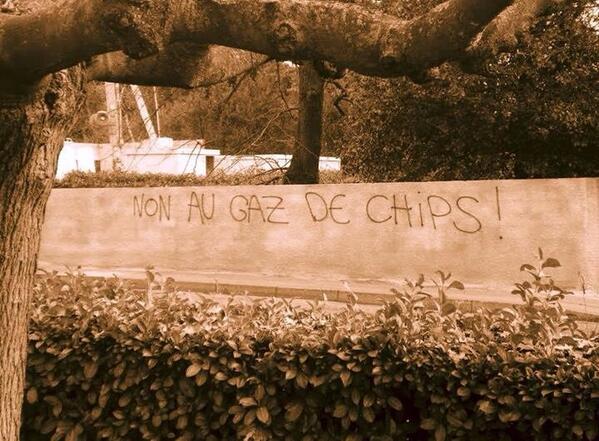 NON AU GAZ DE CHiPS!